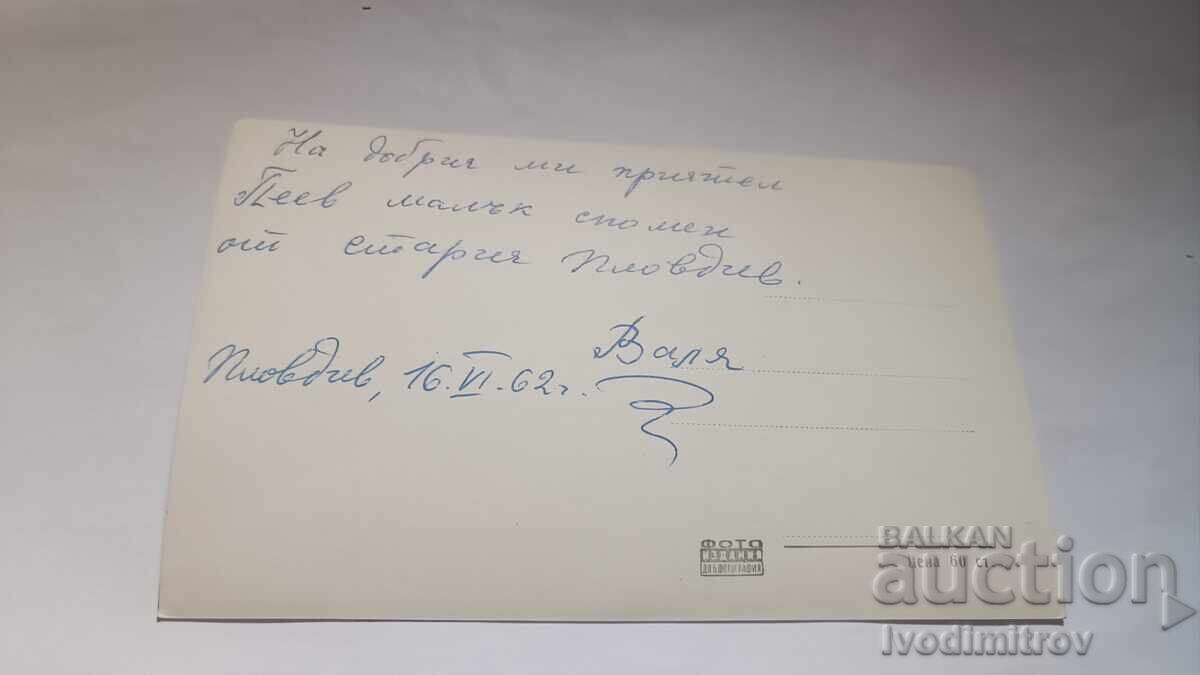 На добрия ми приятел
Пеев малък спомен
от стария Пловдив.
Валя
Пловдив, 16.VI.62г.
ФОТО
ИЗДАНИЯ
ДП БФОТОГРАФИЯ
Цена 60 ст.
BALKAN
auction
Ivodimitrov